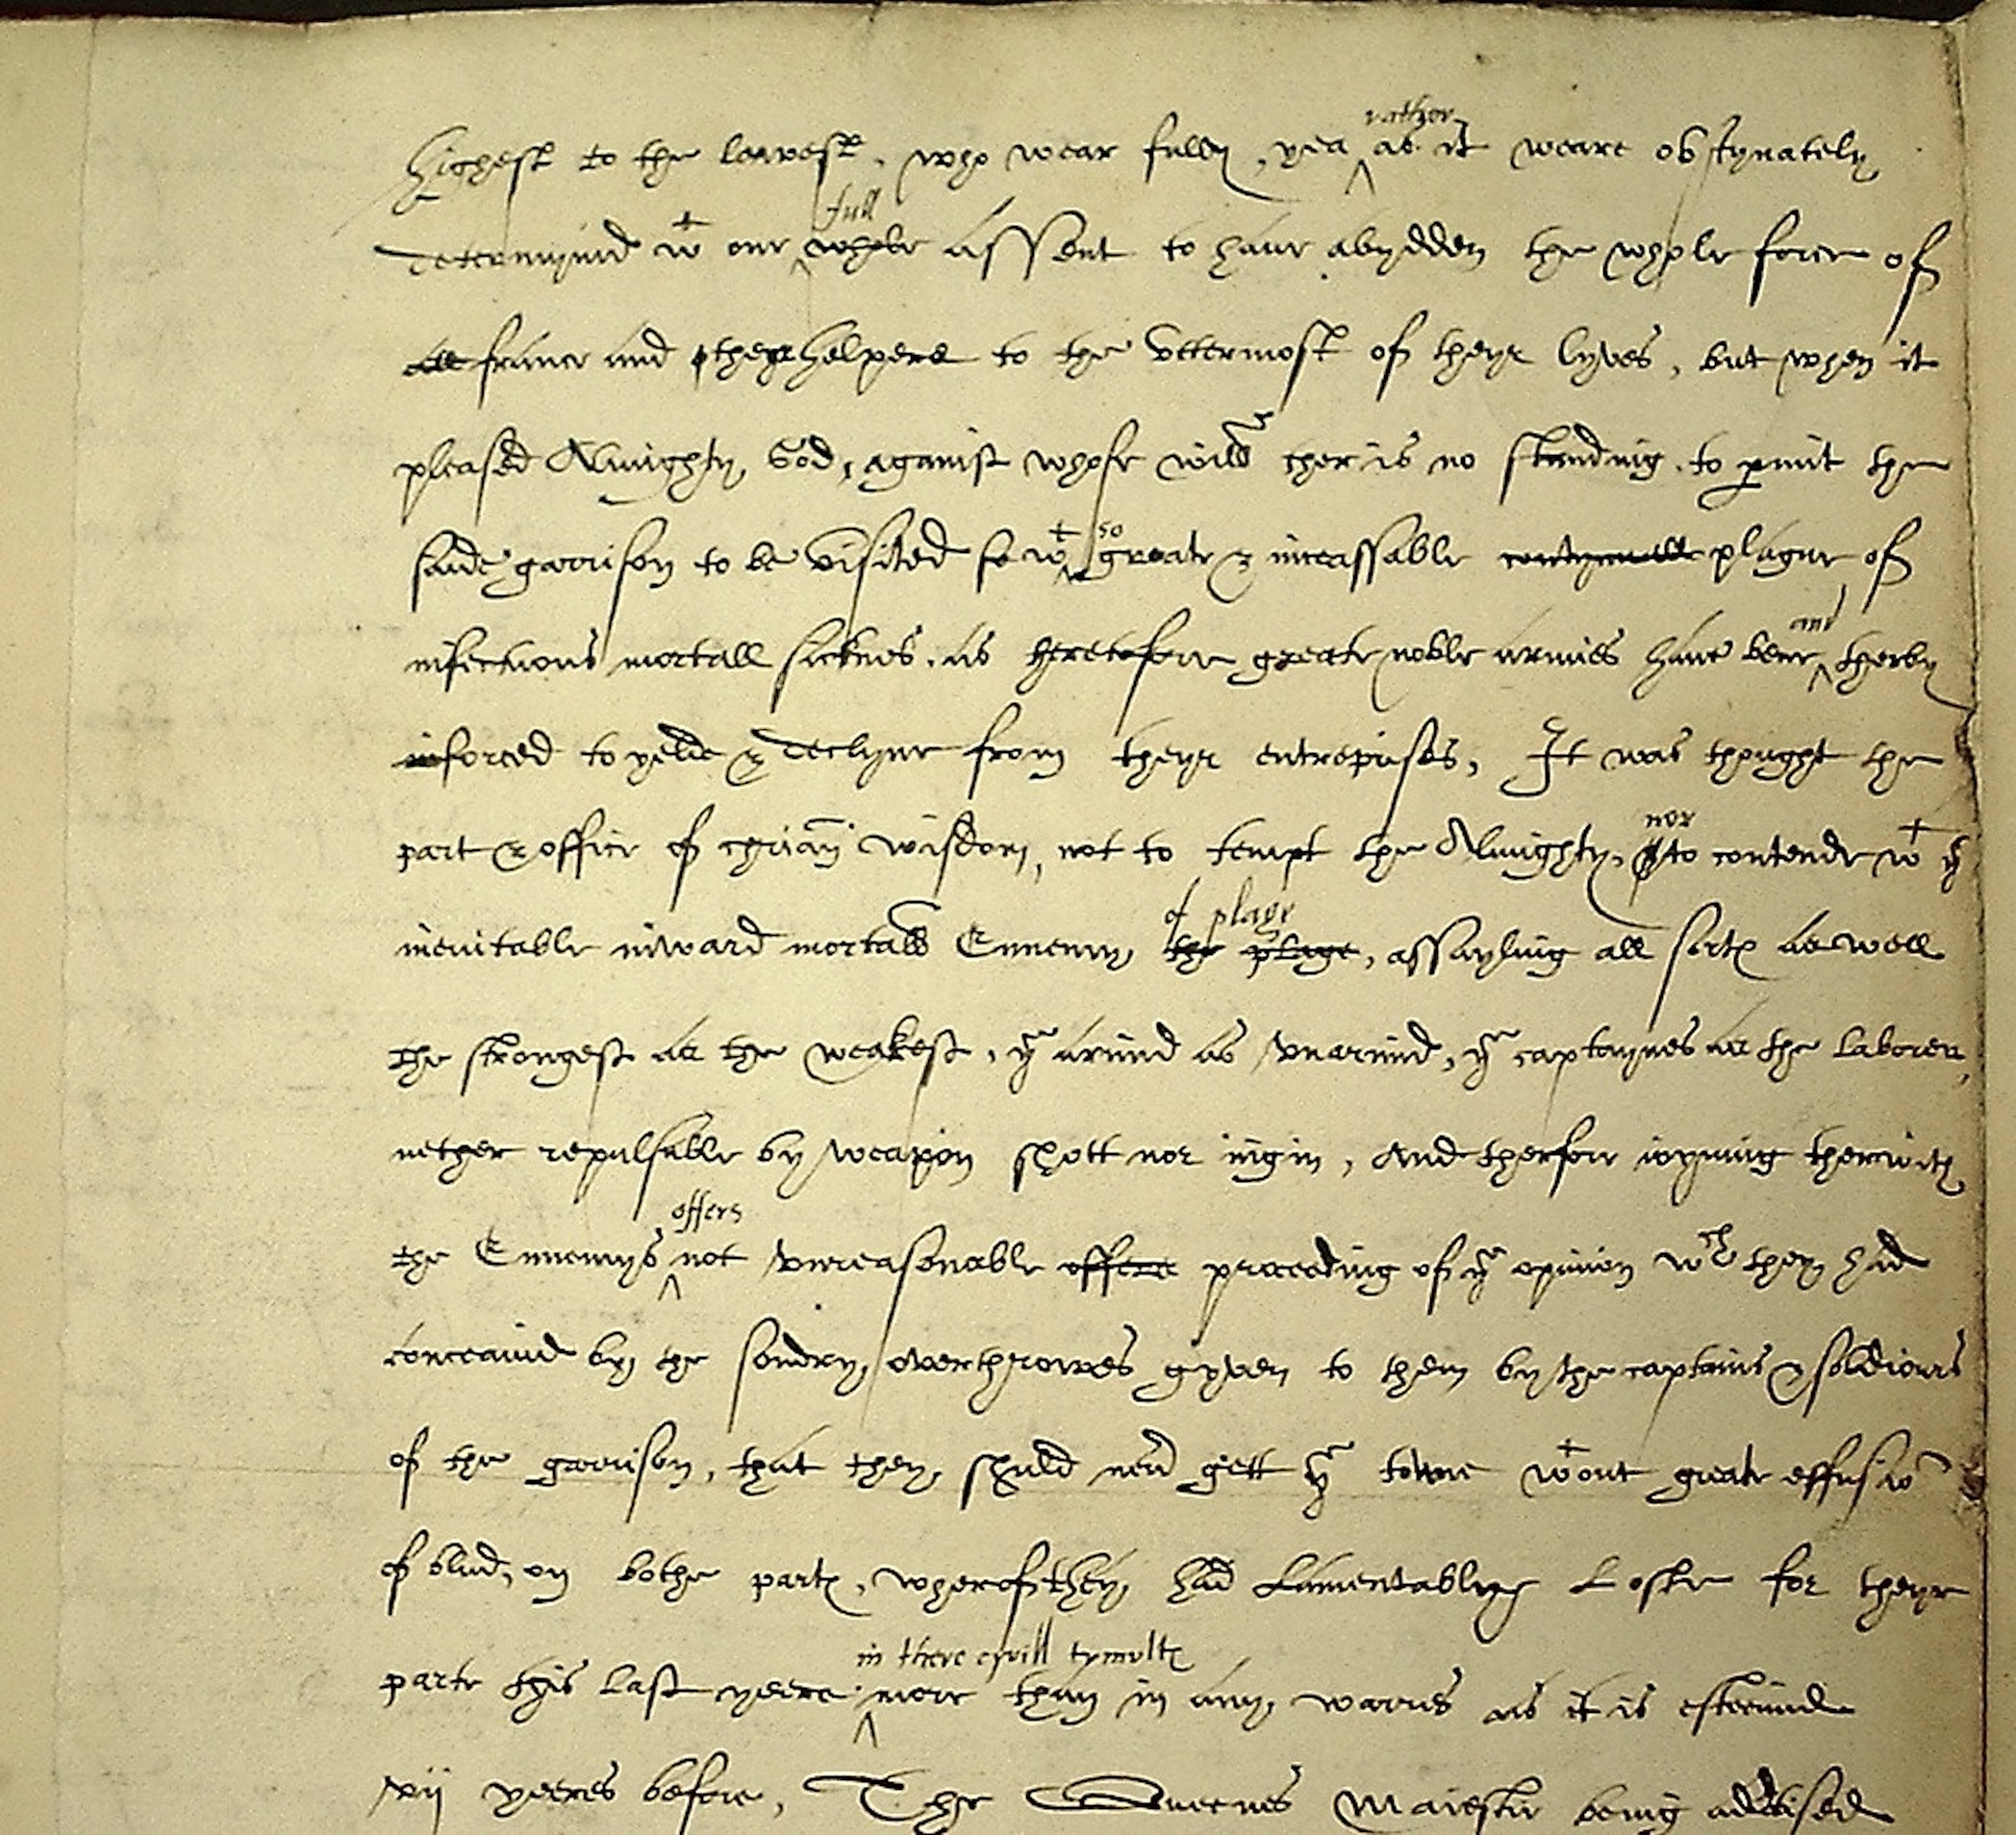 highest to the lowest, who wear fully, yea rather as it weare obstynately
determyned wt our full whole assent to haue abydden the whole force of
all france and theyr helpers to the vttermost of theyr lyves, but when it
pleased Almighty God, against whose will ther is no standing, to pmit the
saide garrison to be visited so wt so greate & inceassable contynuall plague of
infectious mortall sicknes, as heretofore greate noble armies haue bene and therby
inforced to yelde & declyne from theyr entreprises, It was thought the
part & office of chrian wisdom, not to tempt the Almighty, nor to contende wt ye
ineuitable inward mortall Ennemy of plage the plage, assayling all sorts as well
the strongest as the weakest, ye armed as vnarmed, ye captaynes as the laborers,
nether repulsable by weapon shott nor ingin, and therfore ioyning therwith
the Ennemys offers not vnreasonable offers proceeding of ye opinion wch they had
conceaued by the sondry overthrowes gyven to them by the captains & soldiours
of the garrison, that they shuld neuer gett ye towne wtout greate effusion
of blud, on bothe parts, wherof they had Lamentably Loste for theyr
parte this last yeere in there cyvill tymults more than in any warres as it is esteemed
xij yeeres before, The Queenes Maiestie being advised